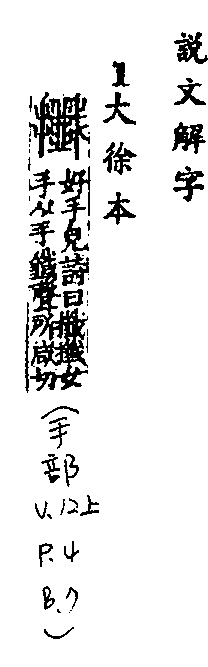 説文解字
1大徐本
攕
好手皃詩曰攕攕女
手从手韱聲所咸切
(手部
V.12上
P.4
B.7)